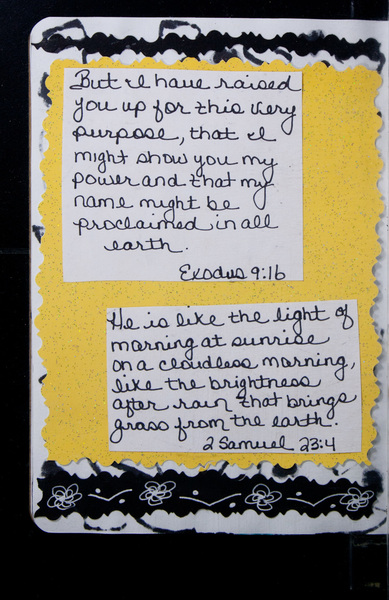 But I have raised
you up for this very
purpose, that I
might show you my
power and that my
name might be
proclaimed in all
earth.
Exodus 9:16
He is like the light of
morning at sunrise
on a cloudless morning,
like the brightness
after rain that brings
grass from the earth.
2 Samuel 23:4